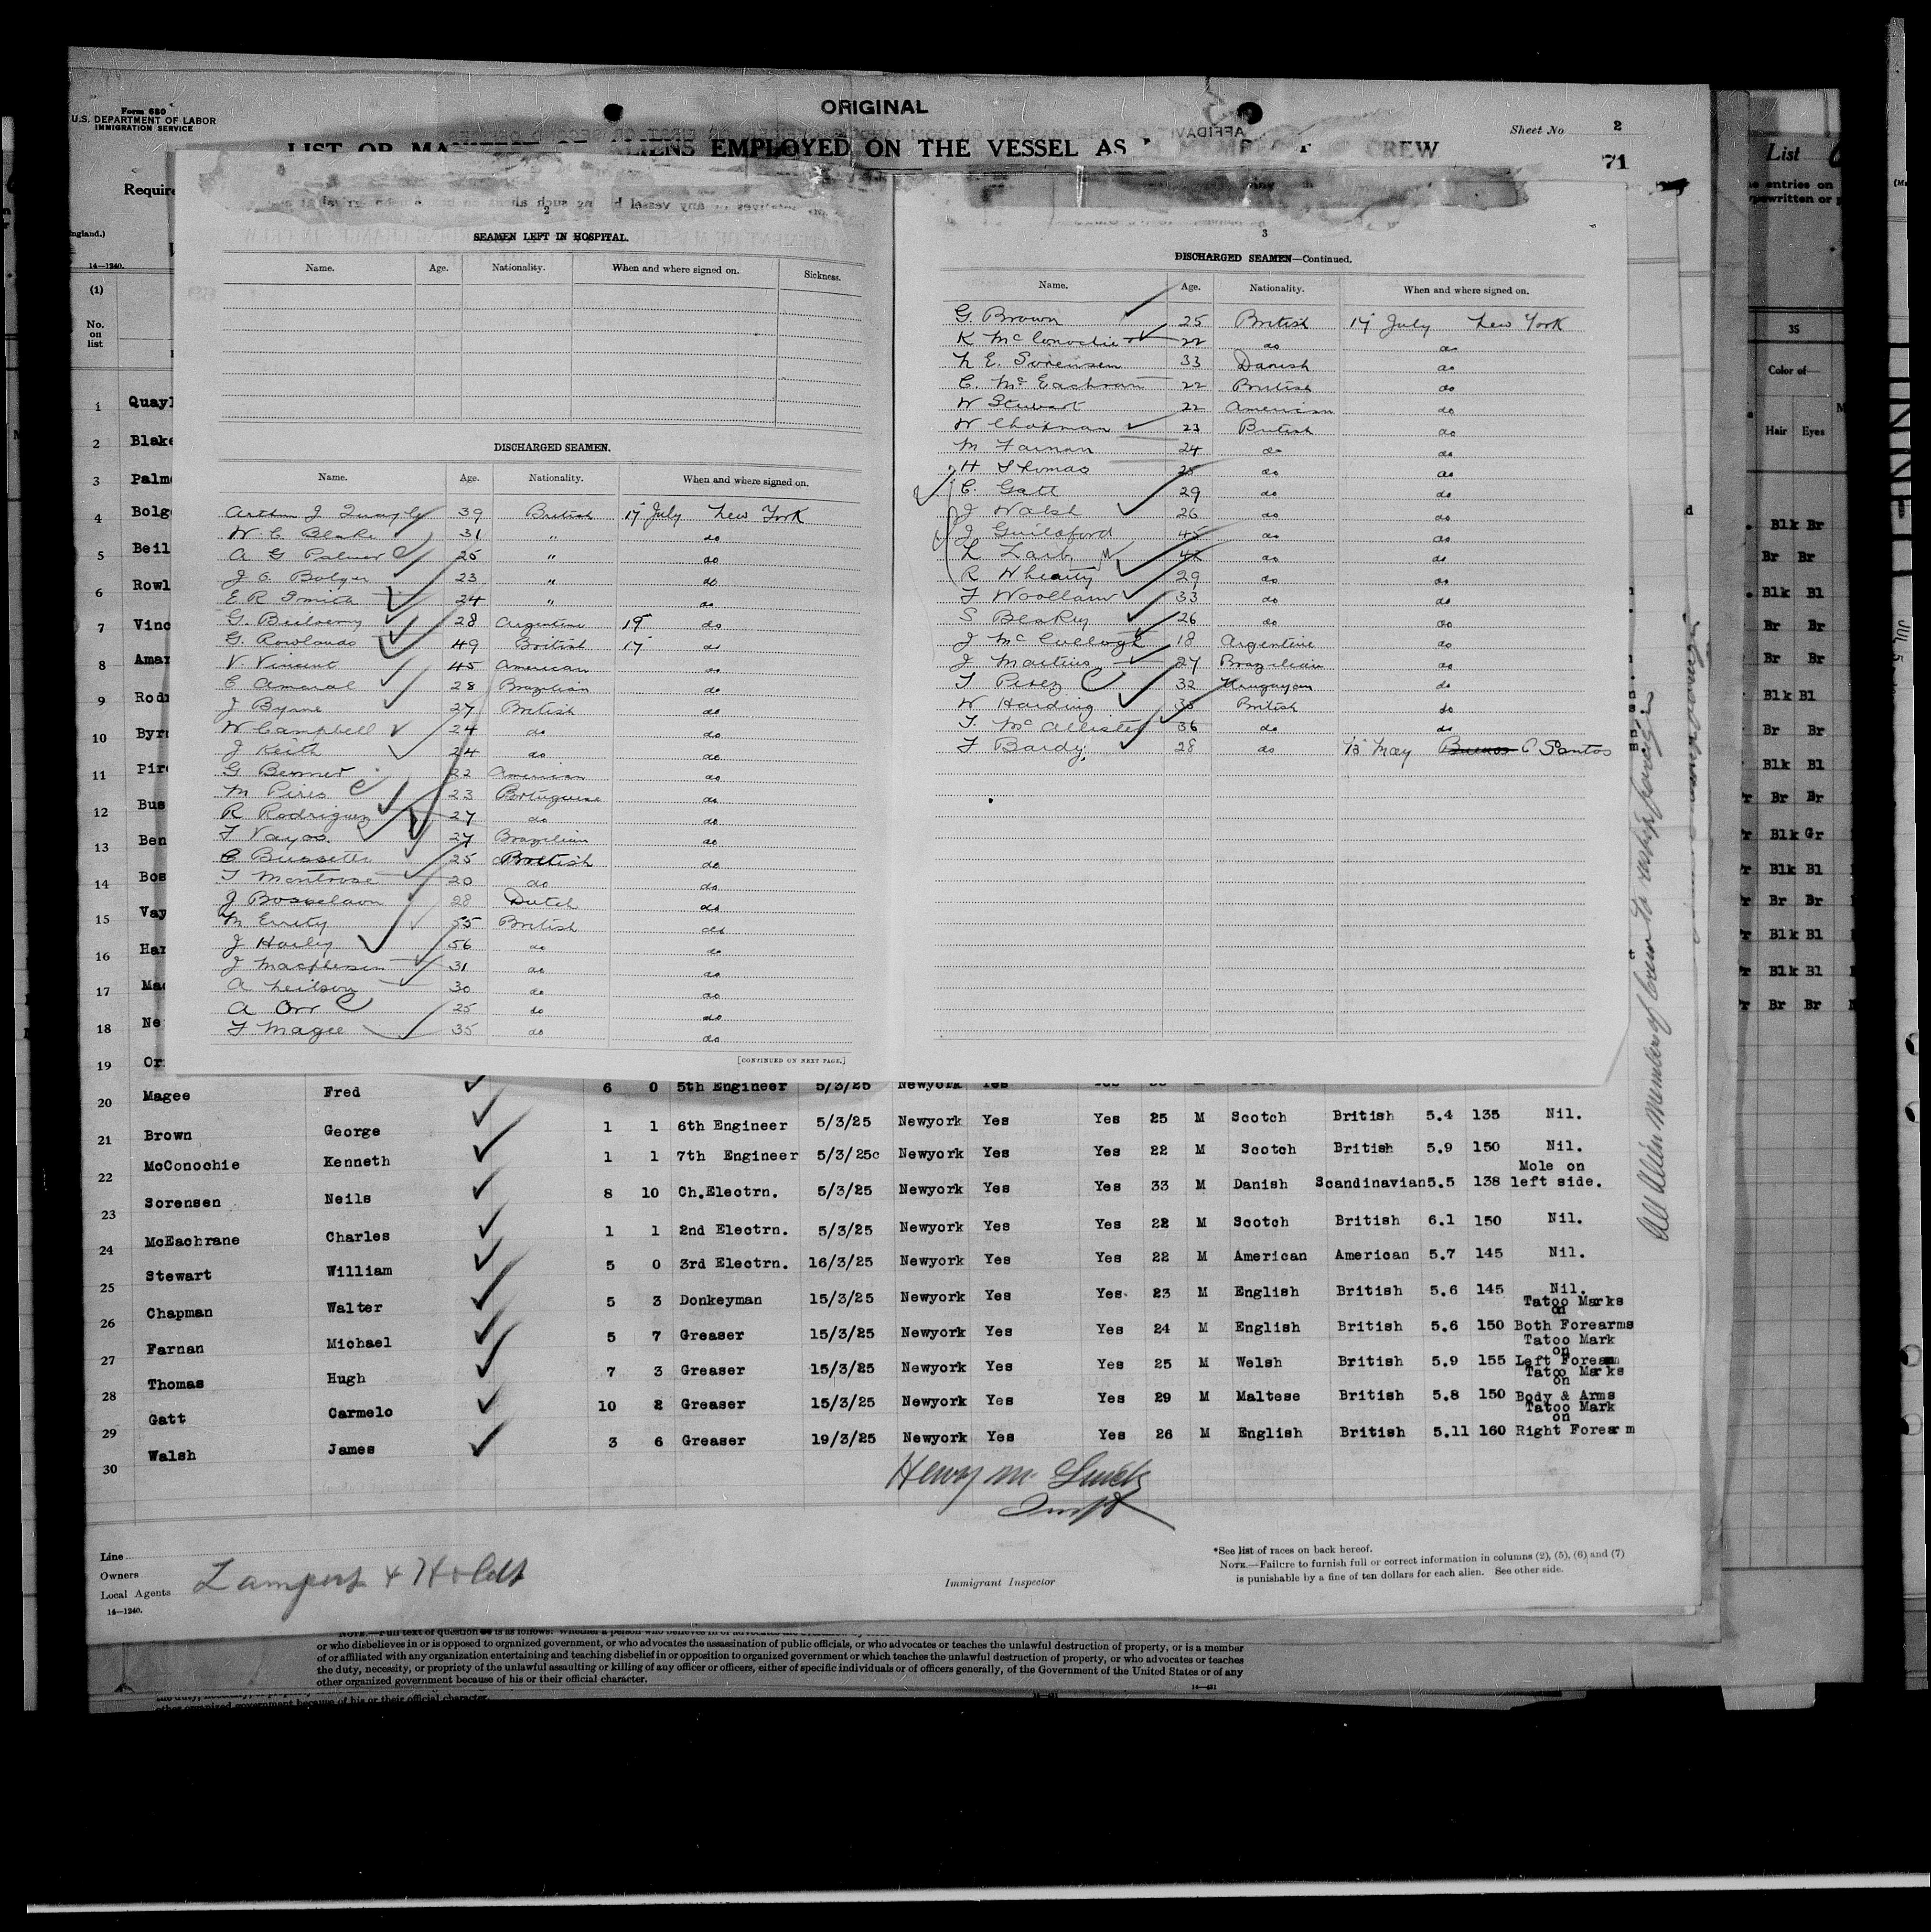 Form 680
U.S. DEPARTMENT OF LABOR
IMMIGRATION SERVICE
ORIGINAL
Sheet No 2
EMPLOYED ON THE VESSEL AS
CREW
71
List
Require
ngland.)
14—1240.
(1)
No.
on
list
2
SEAMEN LEFT IN HOSPITAL.
Name. Age. Nationality. When and where signed on. Sickness.
DISCHARGED SEAMEN.
Name. Age. Nationality. When and where signed on.
Arthur J Quayle 39 British 17 July New York
W. C Blake 31 " do
A G Palmer 25 " do
J C. Bolger 23 " do
E R Smith 24 " do
G. 28 Argentine 19 do
G. Rowlands 49 British 17 do
V. Vincent 45 American do
C Amaral 28 Brazilian do
J Byrne 27 British do
W Campbell 24 do do
J Keith 24 do do
G Benner 22 American do
M Pires 23 Portuguese do
R Rodriguez 27 do do
T Vayos. 27 Brazilian do
C Bussetti 25 British do
T Montrose 20 do do
J Bosselaon 28 Dutch do
M Errity 55 British do
J Harley 56 do do
J Macpherson 31 do do
A Neilson 30 do do
A Orr 25 do do
F Magee 35 do do
[CONTINUED ON NEXT PAGE.]
3
DISCHARGED SEAMEN—Continued.
Name. Age. Nationality. When and where signed on.
G. Brown 25 British 17 July New York
K McConochie 22 do do
N E. Sorensen 33 Danish do
C. McEachran 22 British do
W Stewart 22 American do
W Chapman 23 British do
M Farnan 24 do do
H Thomas 25 do do
C. Gatt 29 do do
J Walsh 26 do do
J Guilsford 45 do do
L 42 do do
R Whearty 29 do do
F Woollam 33 do do
S Beakey 26 do do
J McCullough 18 Argentine do
J Martins 27 Brazilian do
T Perez 32 Uruguayan do
W Harding 35 British do
T. McAllister 36 do do
F Bardy. 28 do 13 May Buenos Santos
1 Quayl
2 Blake
3 Palme
4 Bolge
5 Beil
6 Rowl
7 Vinc
8 Amar
9 Rodr
10 Byrn
11 Pire
12 Bus
13 Ben
14 Bos
15 Vay
16 Har
17 Mac
18 Ne
19 Or
20 Magee Fred 6 0 5th Engineer 5/3/25 Newyork Yes
21 Brown George 1 1 6th Engineer 5/3/25 Newyork Yes Yes 25 M Scotch British 5.4 135 Nil.
22 McConochie Kenneth 1 1 7th Engineer 5/3/25c Newyork Yes Yes 22 M Scotch British 5.9 150 Nil.
23 Sorensen Neils 8 10 Ch.Electrn. 5/3/25 Newyork Yes Yes 33 M Danish Scandinavian 5.5 138 Mole on left side.
24 McEachrane Charles 1 1 2nd Electrn. 5/3/25 Newyork Yes Yes 22 M Scotch British 6.1 150 Nil.
25 Stewart William 5 0 3rd Electrn. 16/3/25 Newyork Yes Yes 22 M American American 5.7 145 Nil.
26 Chapman Walter 5 3 Donkeyman 15/3/25 Newyork Yes Yes 23 M English British 5.6 145 Nil.
27 Farnan Michael 5 7 Greaser 15/3/25 Newyork Yes Yes 24 M English British 5.6 150 Tatoo Marks on Both Forearms
28 Thomas Hugh 7 3 Greaser 15/3/25 Newyork Yes Yes 25 M Welsh British 5.9 155 Tatoo Mark on Left Forearm
29 Gatt Carmelo 10 2 Greaser 15/3/25 Newyork Yes Yes 29 M Maltese British 5.8 150 Tatoo Marks on Body & Arms
30 Walsh James 3 6 Greaser 19/3/25 Newyork Yes Yes 26 M English British 5.11 160 Tatoo Mark on Right Forearm
All Alien Members of Crew to reship foreign
Line
Owners
Local Agents
Lamport & Holdt
14—1240.
Immigrant Inspector
*See list of races on back hereof.
NOTE.—Failure to furnish full or correct information in columns (2), (5), (6) and (7)
is punishable by a fine of ten dollars for each alien. See other side.
or who disbelieves in or is opposed to organized government, or who advocates the assassination of public officials, or who advocates or teaches the unlawful destruction of property, or is a member
of or affiliated with any organization entertaining and teaching disbelief in or opposition to organized government or which teaches the unlawful destruction of property, or who advocates or teaches
the duty, necessity, or propriety of the unlawful assaulting or killing of any officer or officers, either of specific individuals or of officers generally, of the Government of the United States or of any
other organized government because of his or their official character.
14—421
other organized government because of his or their official character.
entries on
35
Color of—
Hair Eyes
Blk Br
Br Br
Blk Bl
Br Br
Br Br
Blk Bl
Br Br
Blk Bl
Br Br
Blk Gr
Blk Bl
Br Br
Blk Bl
Blk Bl
Br Br